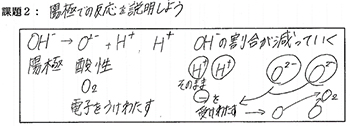 課題2： 陽極での反応を説明しよう
OH⁻ → O²⁻ + H⁺, H⁺
OH⁻の割合が減っていく
陽極 酸性
H⁺ H⁺ O²⁻ O²⁻
O₂
そのまま
電子をうけわたす
⊖を
受けわたす → O O O₂